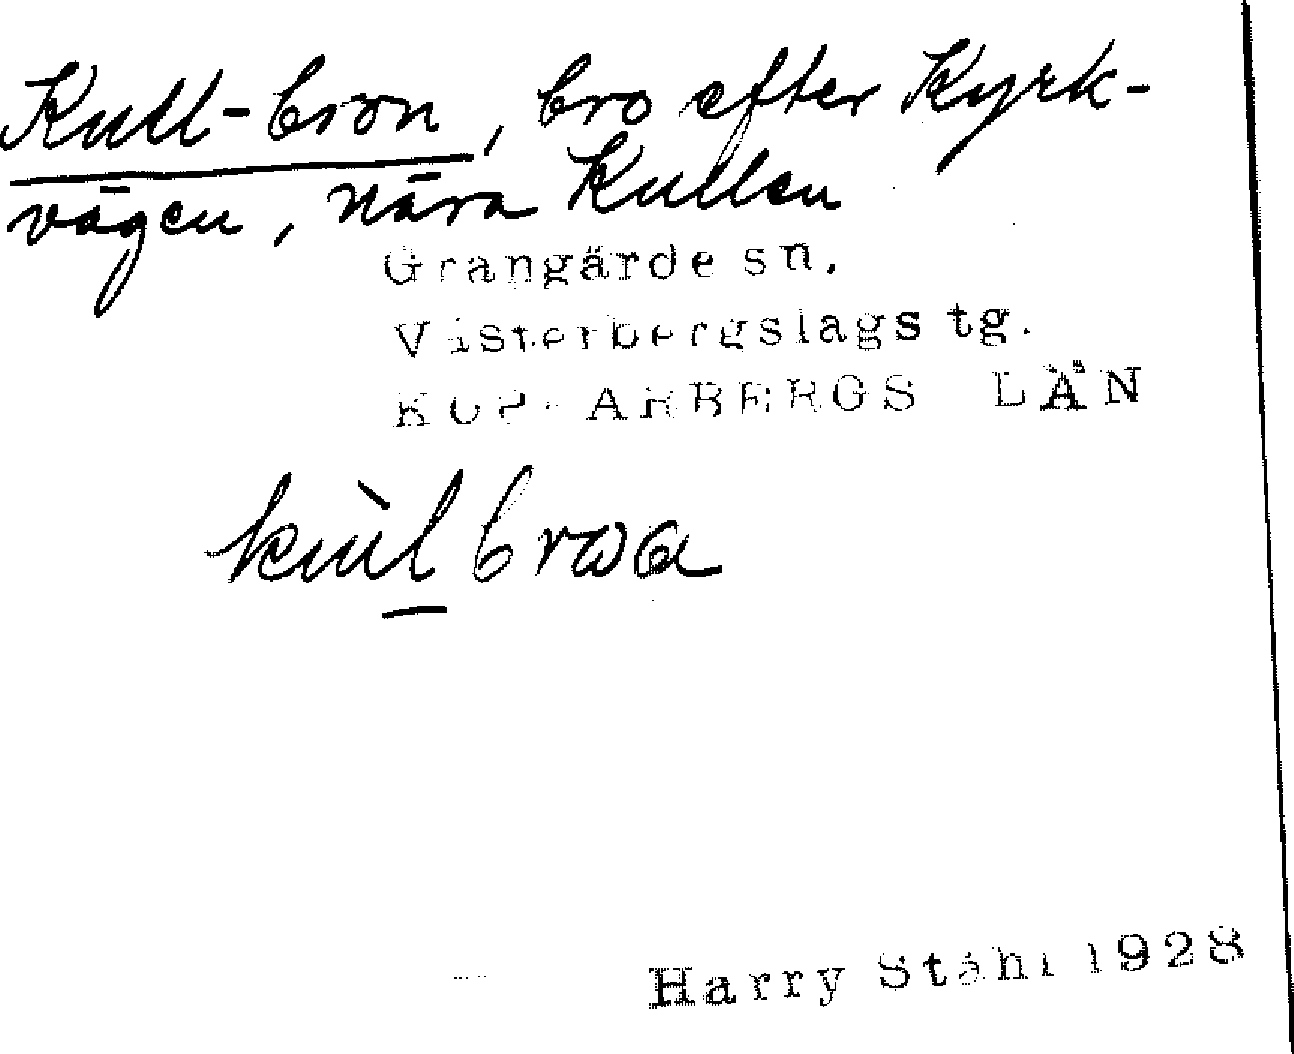 Kull-bron, bro efter Kyrk-
vägen, nära Kullen
Grangärde sn.
Västerbergslags tg.
KOPPARBERGS LÄN
kùl brωa
Harry Ståhl 1928